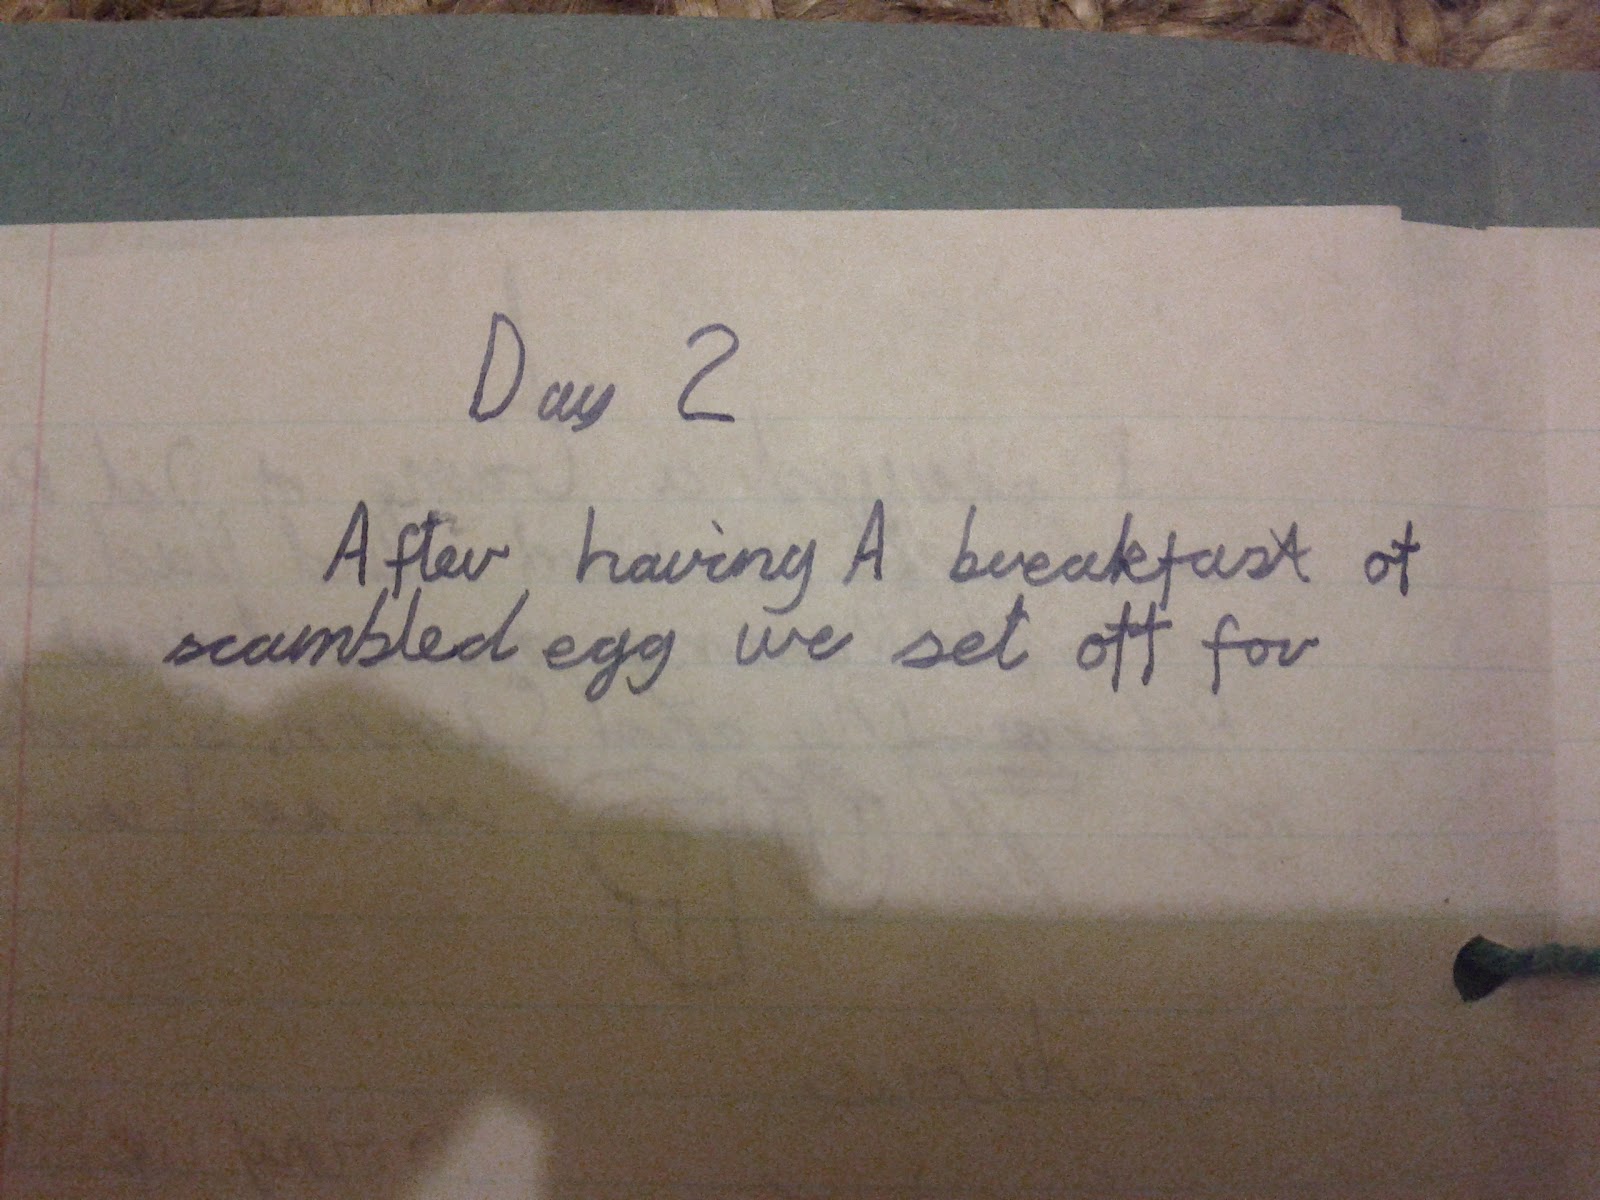 Day 2
After having A breakfast of
scambled egg we set off for